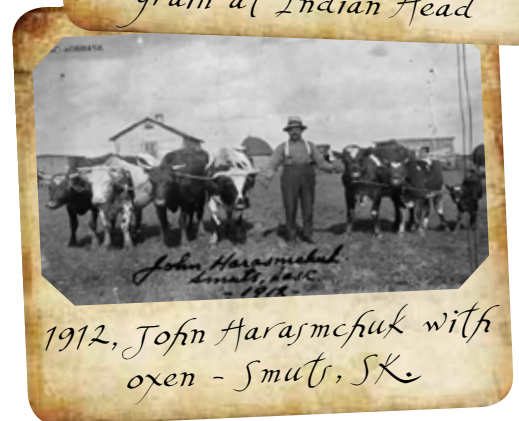 grain at Indian Head
John Harasmchuk
Smuts, Sask.
- 1912 -
1912, John Harasmchuk with
oxen - Smuts, SK.